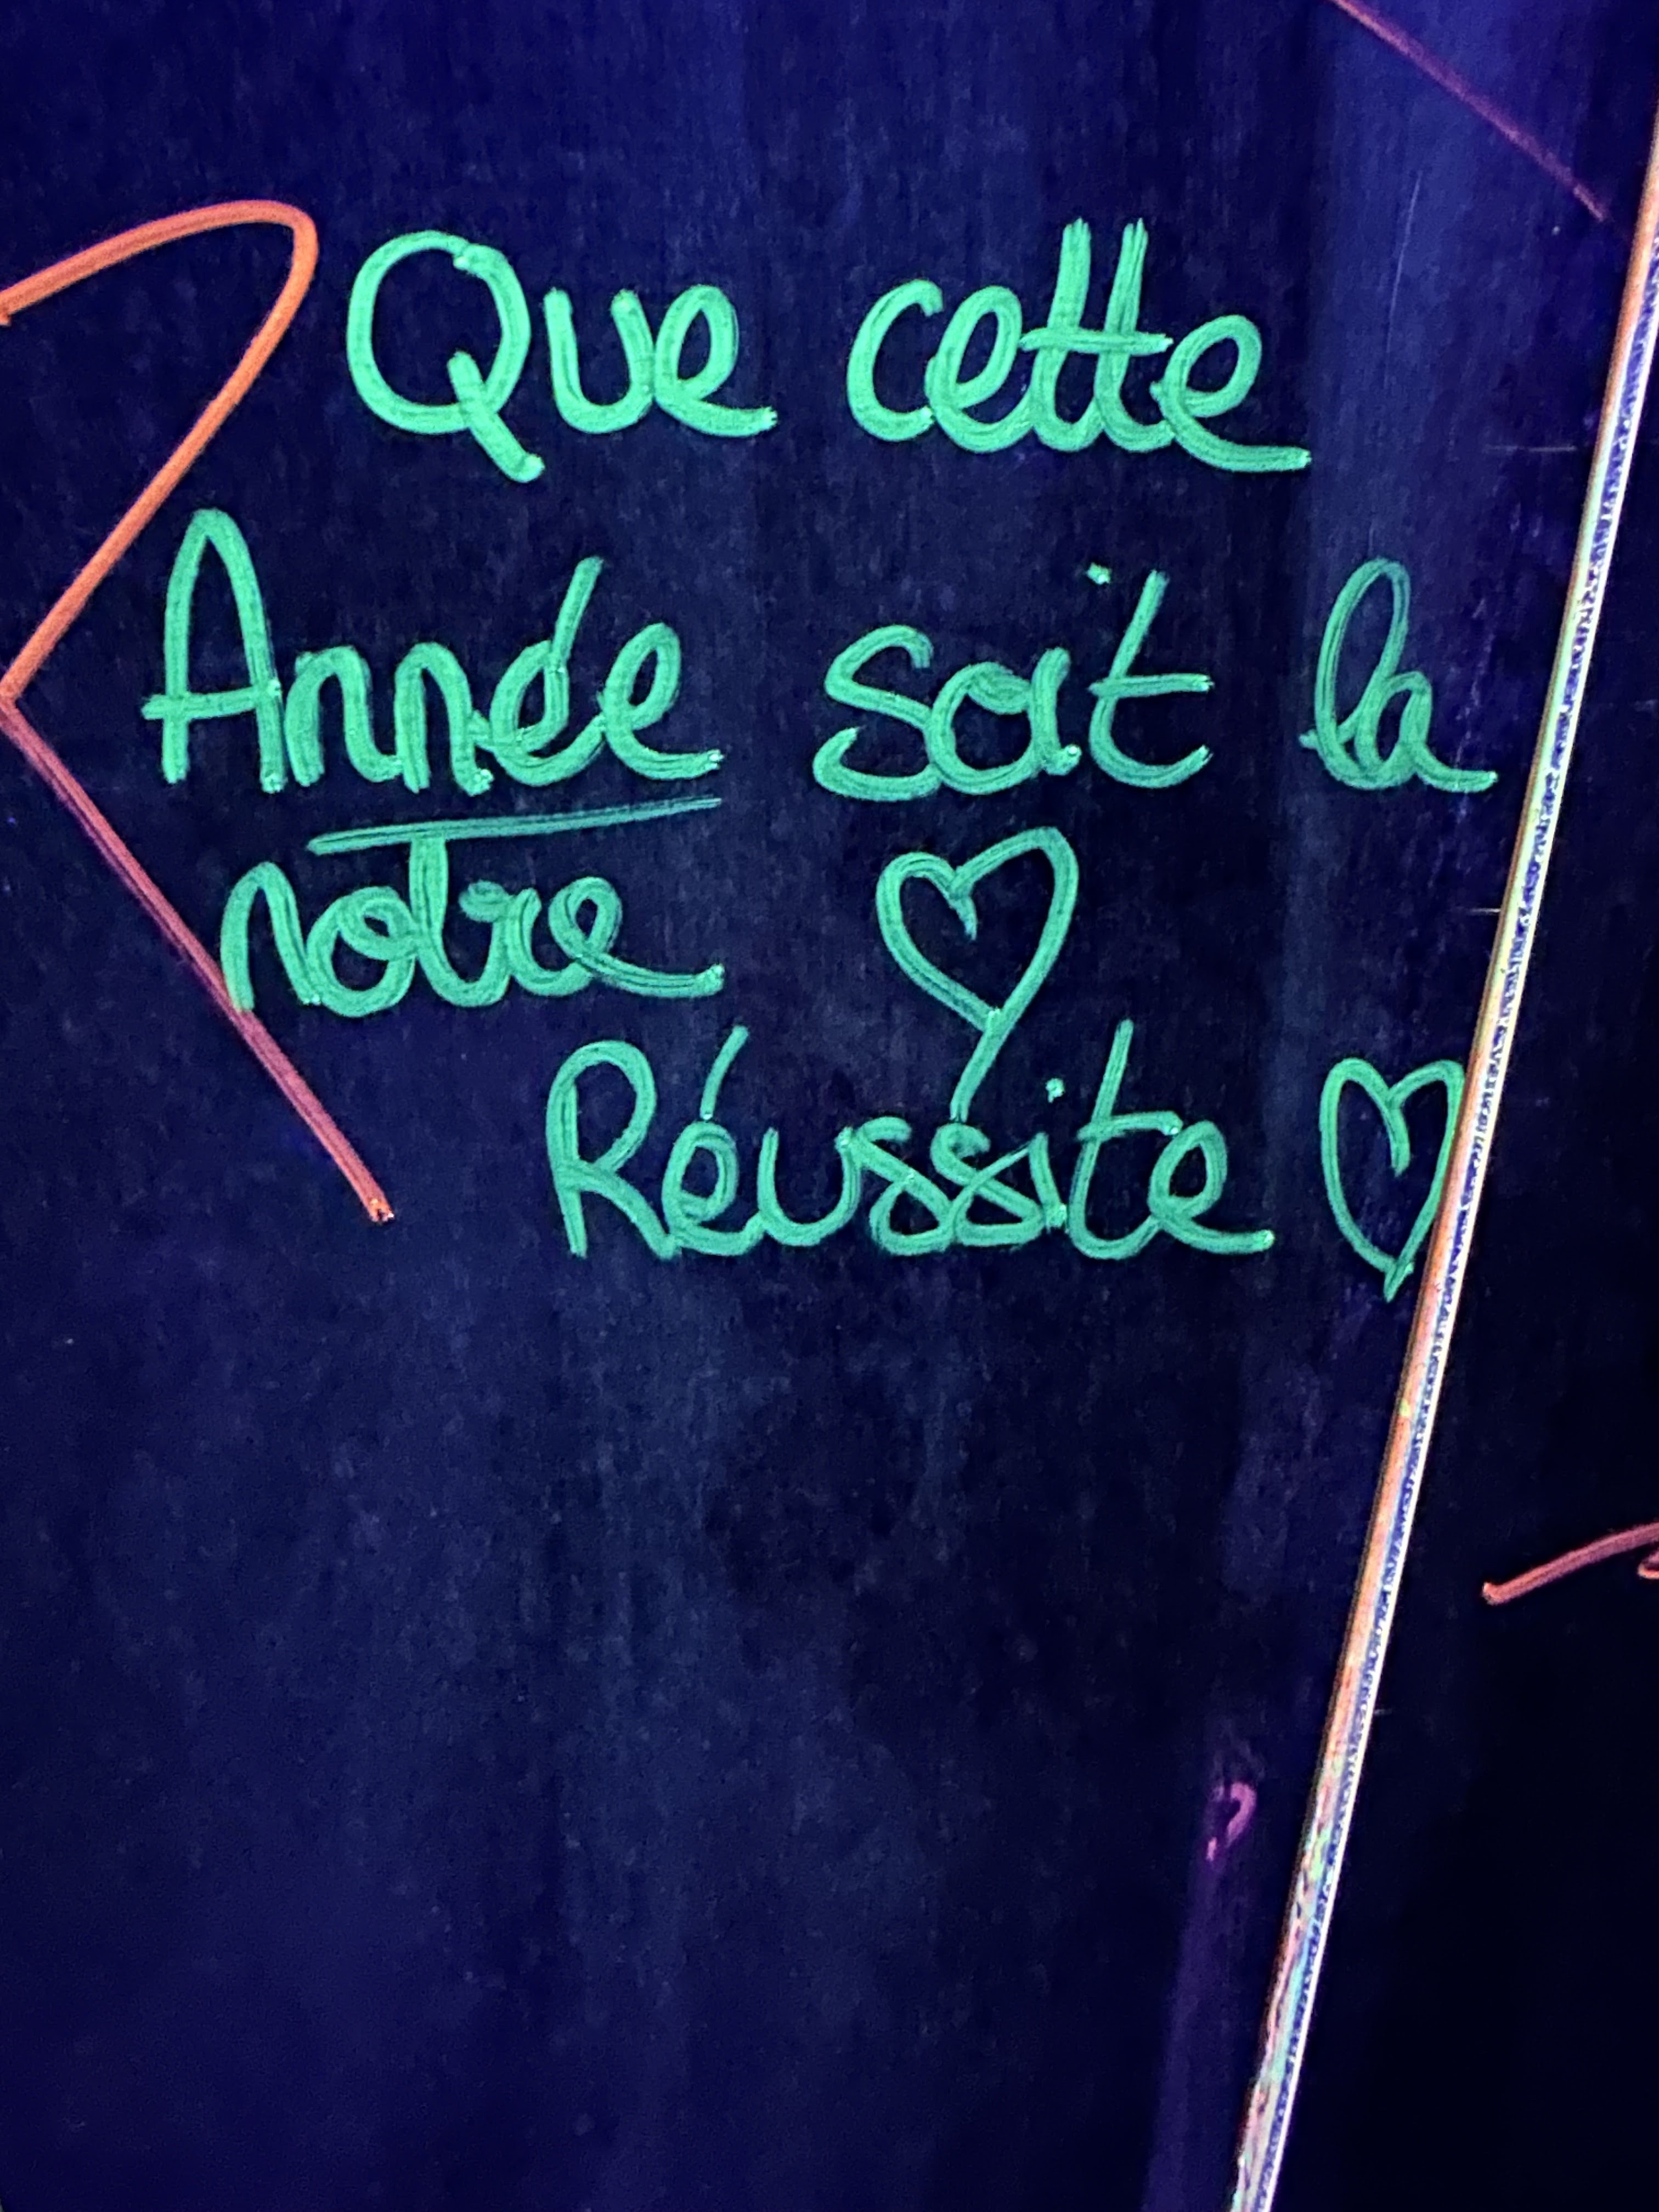 Que cette
Année soit la
notre ♡
Réussite ♡